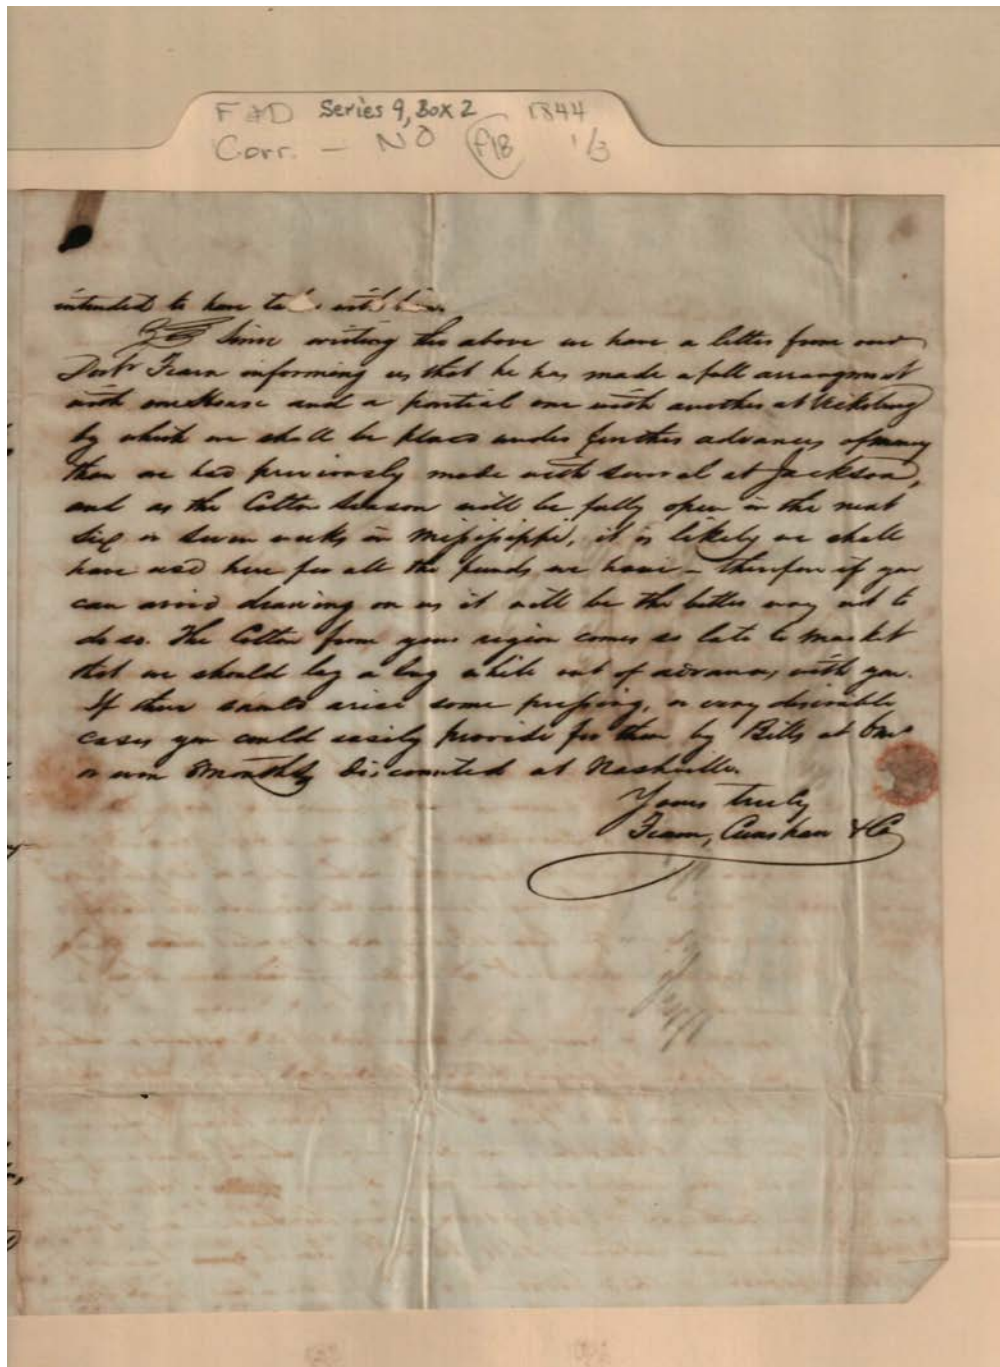 F&D Series 9, Box 2 1844
Corr. — NO f18 1/3
intended to have with him.
Since writing the above we have a letter from our
Doctr Fearn informing us that he has made a full arrangment
with one House and a partial one with another at Vicksburg
by which we shall be place under further advances of money
than we had previously made with several at Jackson,
and as the Cotton Season will be fully open in the next
six or seven weeks in Mississippi, it is likely we shall
have use here for all the funds we have – therefore if you
can avoid drawing on us it will be the better way not to
do so. The Cotton from your region comes so late to market
that we should lay a long while out of advances with you.
If there should arise some pressing, or very desirable
cases you could easily provide for them by Bills at
or even 8 months discounted at Nashville.
Yours truly
Fearn, Crenshaw & Co